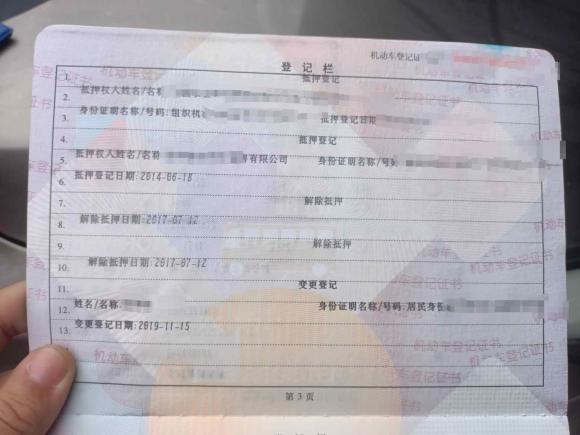 机动车登记证
登记栏
1. 抵押登记
2. 抵押权人姓名/名称
3. 身份证明名称/号码:组织机 抵押登记日期
4. 抵押登记
5. 抵押权人姓名/名称 有限公司 身份证明名称/号码
6. 抵押登记日期:2014-06-18
7. 解除抵押
8. 解除抵押日期:2017-07-12
9. 解除抵押
10. 解除抵押日期:2017-07-12
11. 变更登记
12. 姓名/名称 身份证明名称/号码:居民身份
13. 变更登记日期:2019-11-15
第 3 页